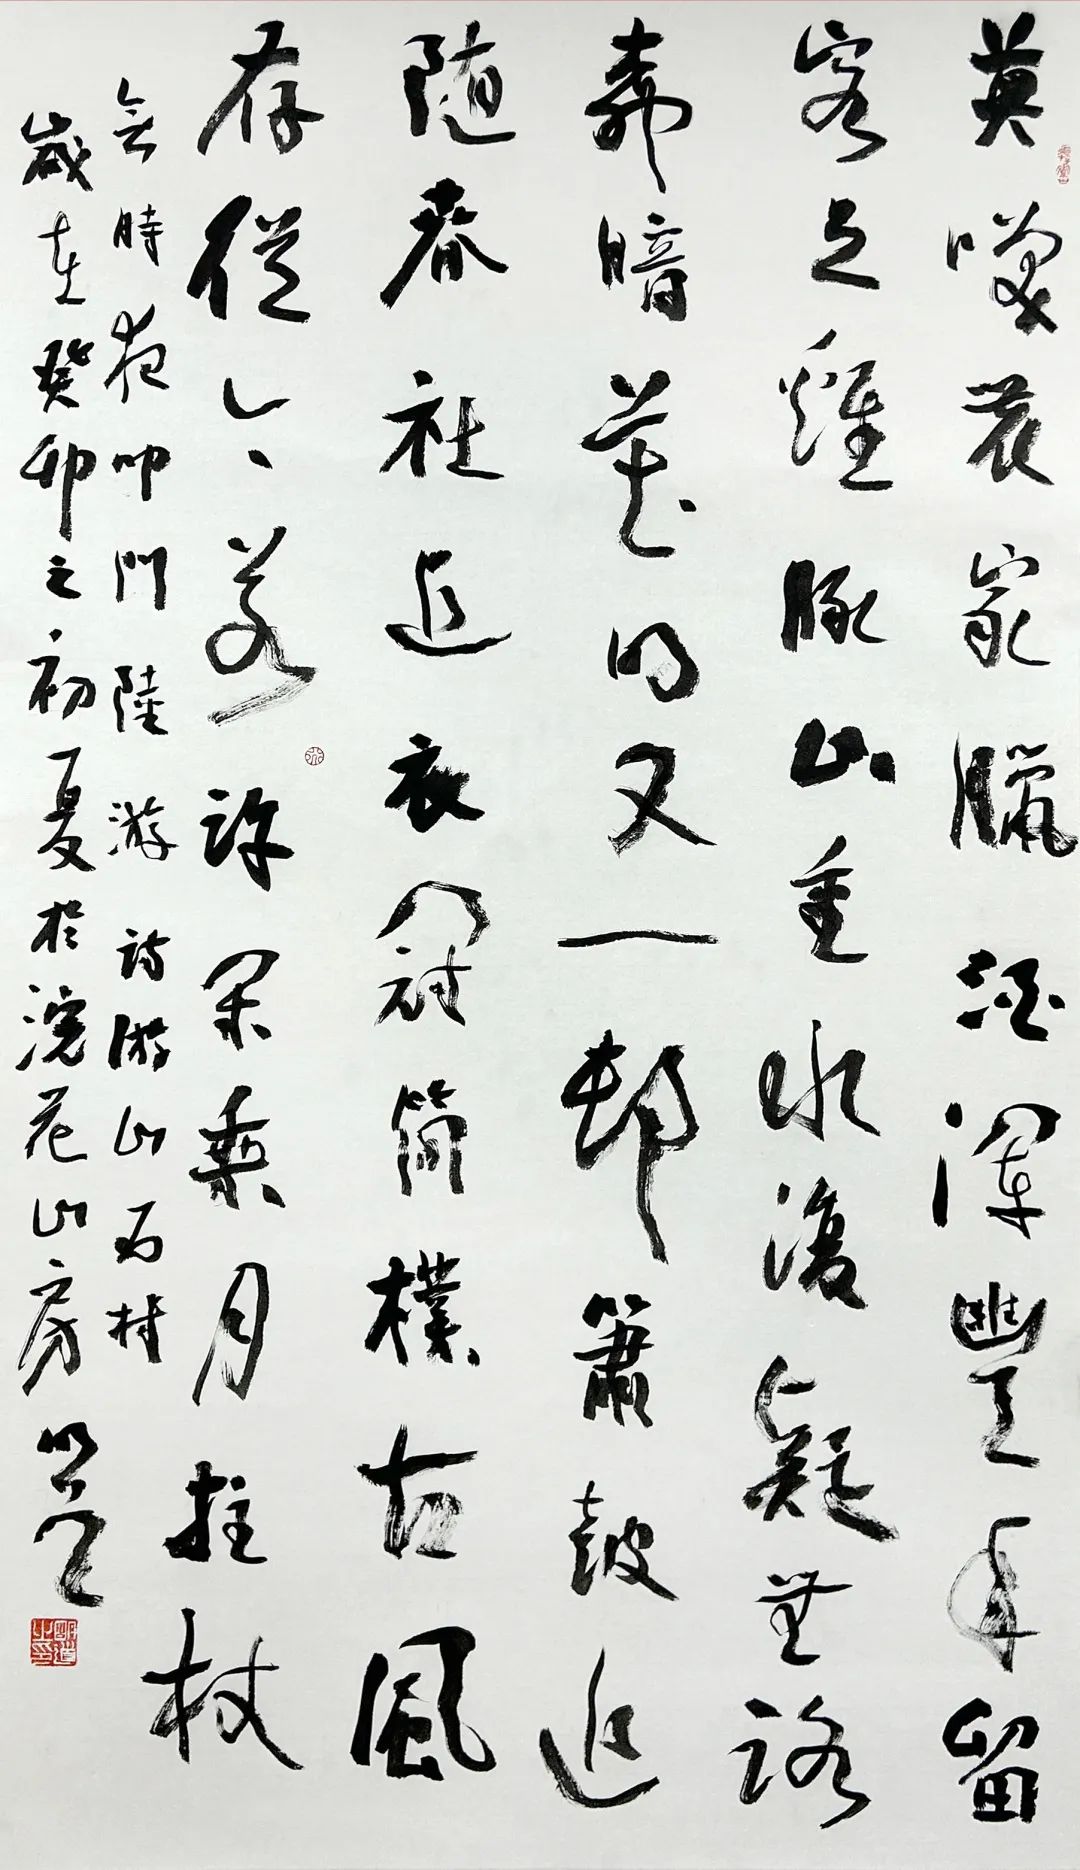 莫咲農家臘酒渾豐年留
客足雞豚山重水複疑無路
柳暗花明又一邨簫鼓追
隨春社近衣冠簡樸古風
存從今若許閑乘月拄杖
無時夜叩門陸游詩游山西村
歲在癸卯之初夏於浣花山房明道
明道之印